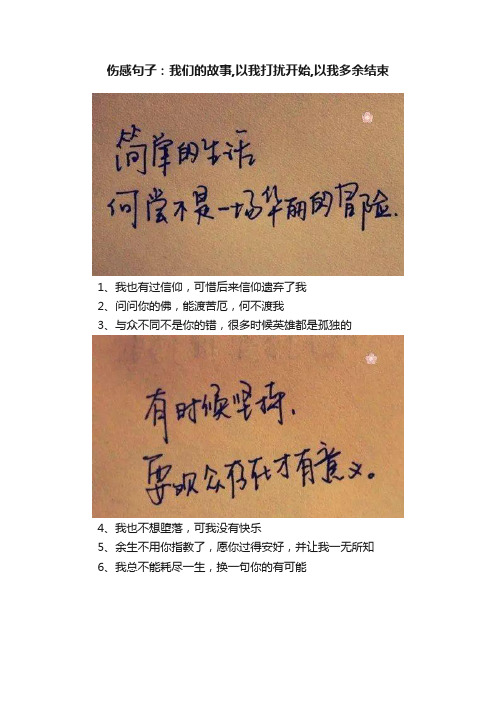 伤感句子：我们的故事,以我打扰开始,以我多余结束
简单的生活
何尝不是一场华丽的冒险.
1、我也有过信仰，可惜后来信仰遗弃了我
2、问问你的佛，能渡苦厄，何不渡我
3、与众不同不是你的错，很多时候英雄都是孤独的
有时候坚持.
要观众存在才有意义。
4、我也不想堕落，可我没有快乐
5、余生不用你指教了，愿你过得安好，并让我一无所知
6、我总不能耗尽一生，换一句你的有可能